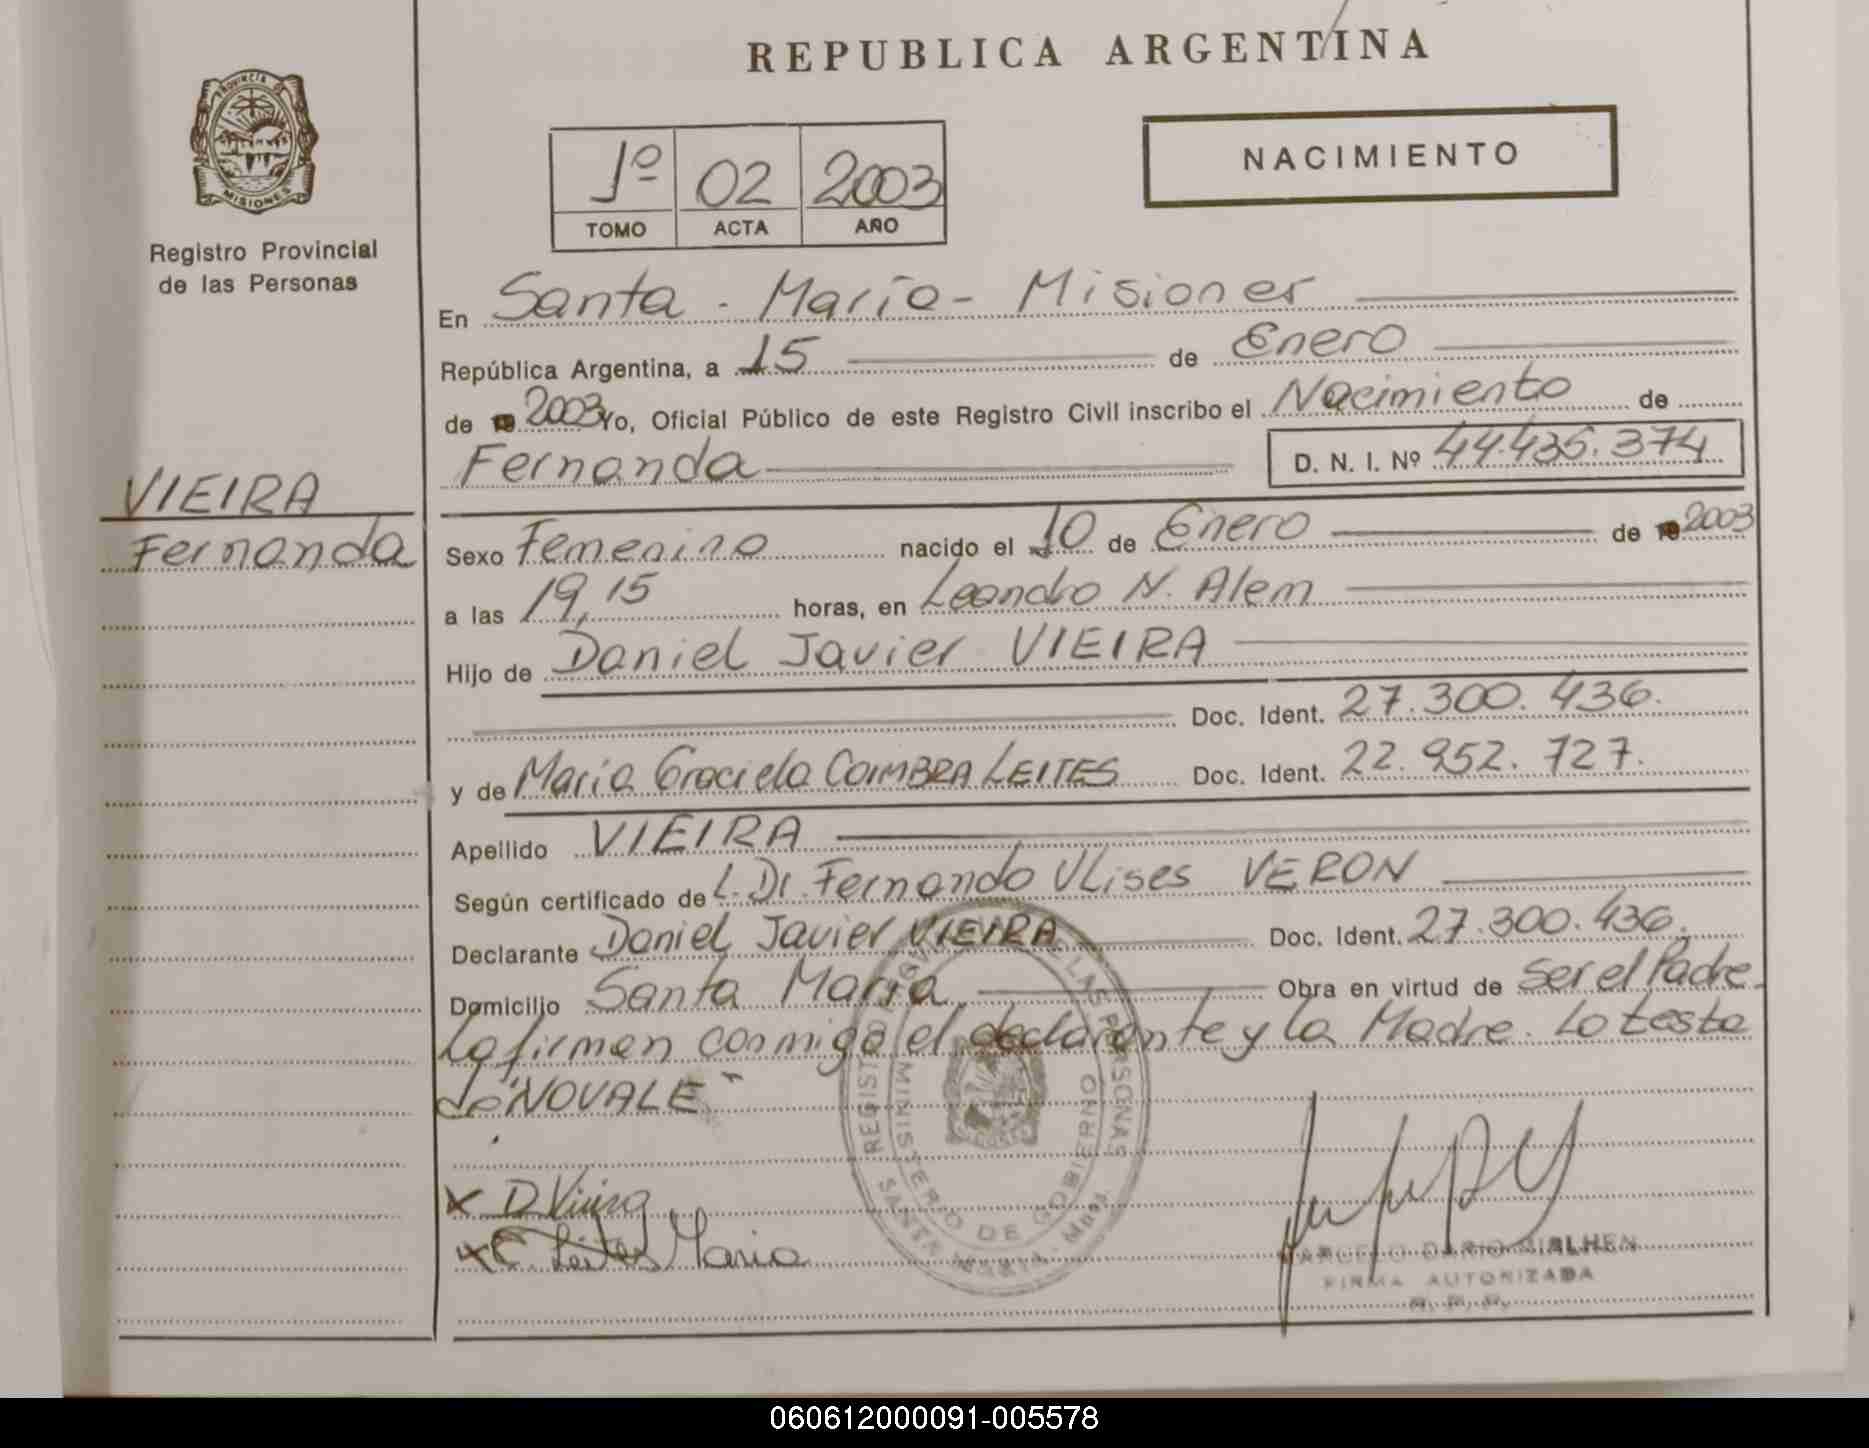 REPUBLICA ARGENTINA
PROVINCIA DE MISIONES
Registro Provincial
de las Personas
1º 02 2003
TOMO ACTA AÑO
NACIMIENTO
En Santa - María - Misiones
República Argentina, a 15 de Enero
de 2003 Yo, Oficial Público de este Registro Civil inscribo el Nacimiento de
Fernanda D. N. I. Nº 44.435.374
VIEIRA
Fernanda
Sexo Femenino nacido el 10 de Enero de 2003
a las 19,15 horas, en Leandro N. Alem
Hijo de Daniel Javier VIEIRA
Doc. Ident. 27.300.436.
y de María Graciela COIMBRA LEITES Doc. Ident. 22.952.727.
Apellido VIEIRA
Según certificado de L. Dr. Fernando Ulises VERON
Declarante Daniel Javier VIEIRA Doc. Ident. 27.300.436.
Domicilio Santa María Obra en virtud de ser el Padre.
La firman conmigo el declarante y la Madre. Lo testa
do "NO VALE"
REGISTRO DE LAS PERSONAS
MINISTERIO DE GOBIERNO
SANTA MARIA - Mnes.
x D Vieira
x C. Leites Maria
MARCELO DARIO
FIRMA AUTORIZADA
R. P. P.
060612000091-005578